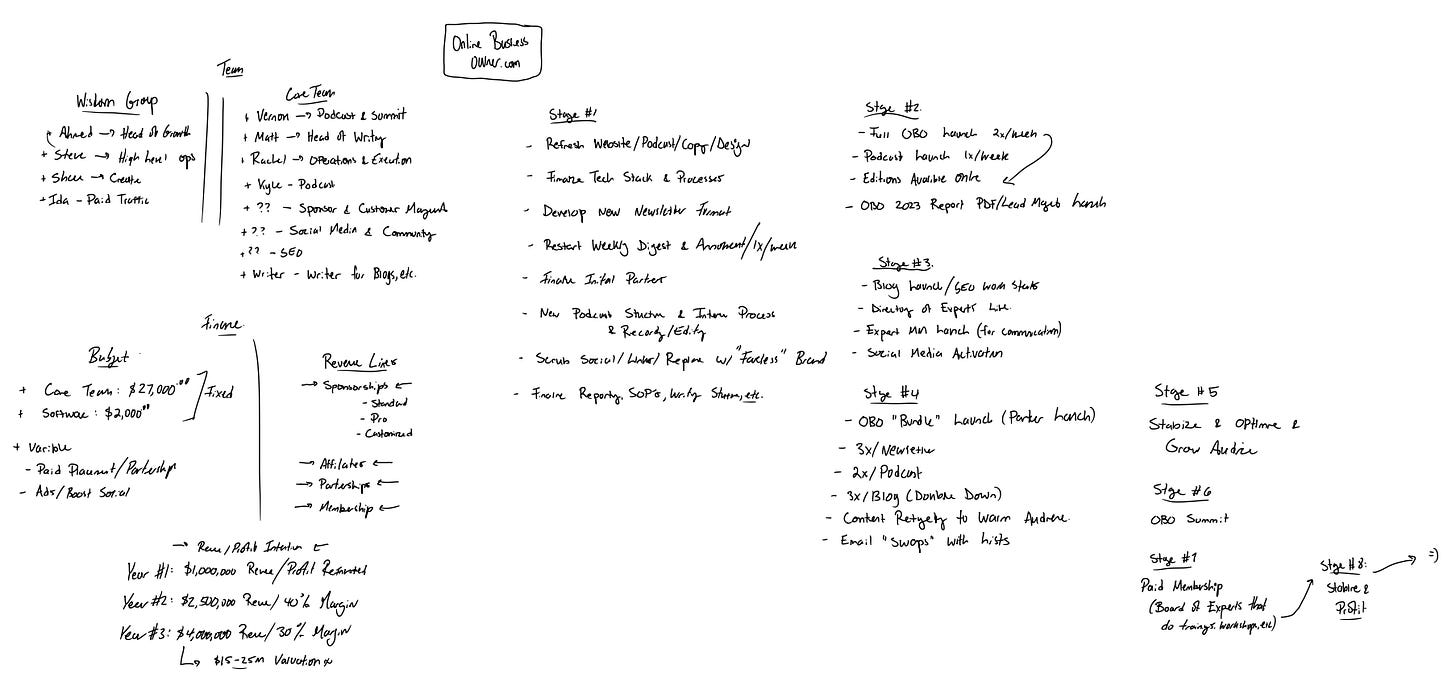 Online Business
Owner.com
Team
Wisdom Group
Ahmed → Head of Growth
+ Steve → High Level ops
+ Shree → Create
+ Ida - Paid Traffic
Core Team
+ Vernon → Podcast & Summit
+ Matt → Head of Writing
+ Rachel → Operations & Execution
+ Kyle - Podcast
+ ?? - Sponsor & Customer
+ ?? - Social Media & Community
+ ?? - SEO
+ Writer - Writer for Blogs, etc.
Finance
Budget
+ Core Team: $27,000.00
+ Software: $2,000.00
Fixed
+ Varible
- Paid Placement/Partership
- Ads/Boost Social
Revenue Lines
→ Sponsorships ←
- Standard
- Pro
- Customized
→ Affiliates ←
→ Parterships ←
→ Membership ←
→ Reve/Profit Intention ←
Year #1: $1,000,000 Reve/Profit Reinvested
Year #2: $2,500,000 Reve/40% Margin
Year #3: $4,000,000 Reve/30% Margin
↳ $15-25M Valuation
Stage #1
- Refresh Website/Podcast/Copy/Design
- Finalize Tech Stack & Processes
- Develop New Newsletter Format
- Restart Weekly Digest & /1x/week
- Finalize Initial Partner
- New Podcast Structure & Intern Process
& Recording/Editing
- Scrub Social/Links/Replace w/ "Faceless" Brand
- Finalize Reporting, SOP's, Writing, etc.
Stage #2.
- Full OBO Launch 2x/week
- Podcast Launch 1x/week
- Editions Available Online
- OBO 2023 Report PDF/Lead Magnet Launch
Stage #3.
- Blog Launch/SEO Work Starts
- Directory of Experts Live.
- Expert Launch (for communication)
- Social Media Activation
Stage #4
- OBO "Bundle" Launch (Partner Launch)
- 3x/Newsletter
- 2x/Podcast
- 3x/Blog (Double Down)
- Content to Warm Audience.
- Email "Swops" with Lists
Stage #5
Stabilize & Optimize &
Grow Audience
Stage #6
OBO Summit
Stage #7
Paid Membership
(Board of Experts that
do trainings, workshops, etc)
Stage #8:
Stabilize &
Profit
=)